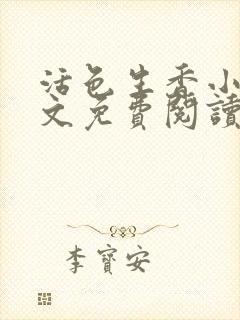 活色生香小
文免費閱讀
李寶安